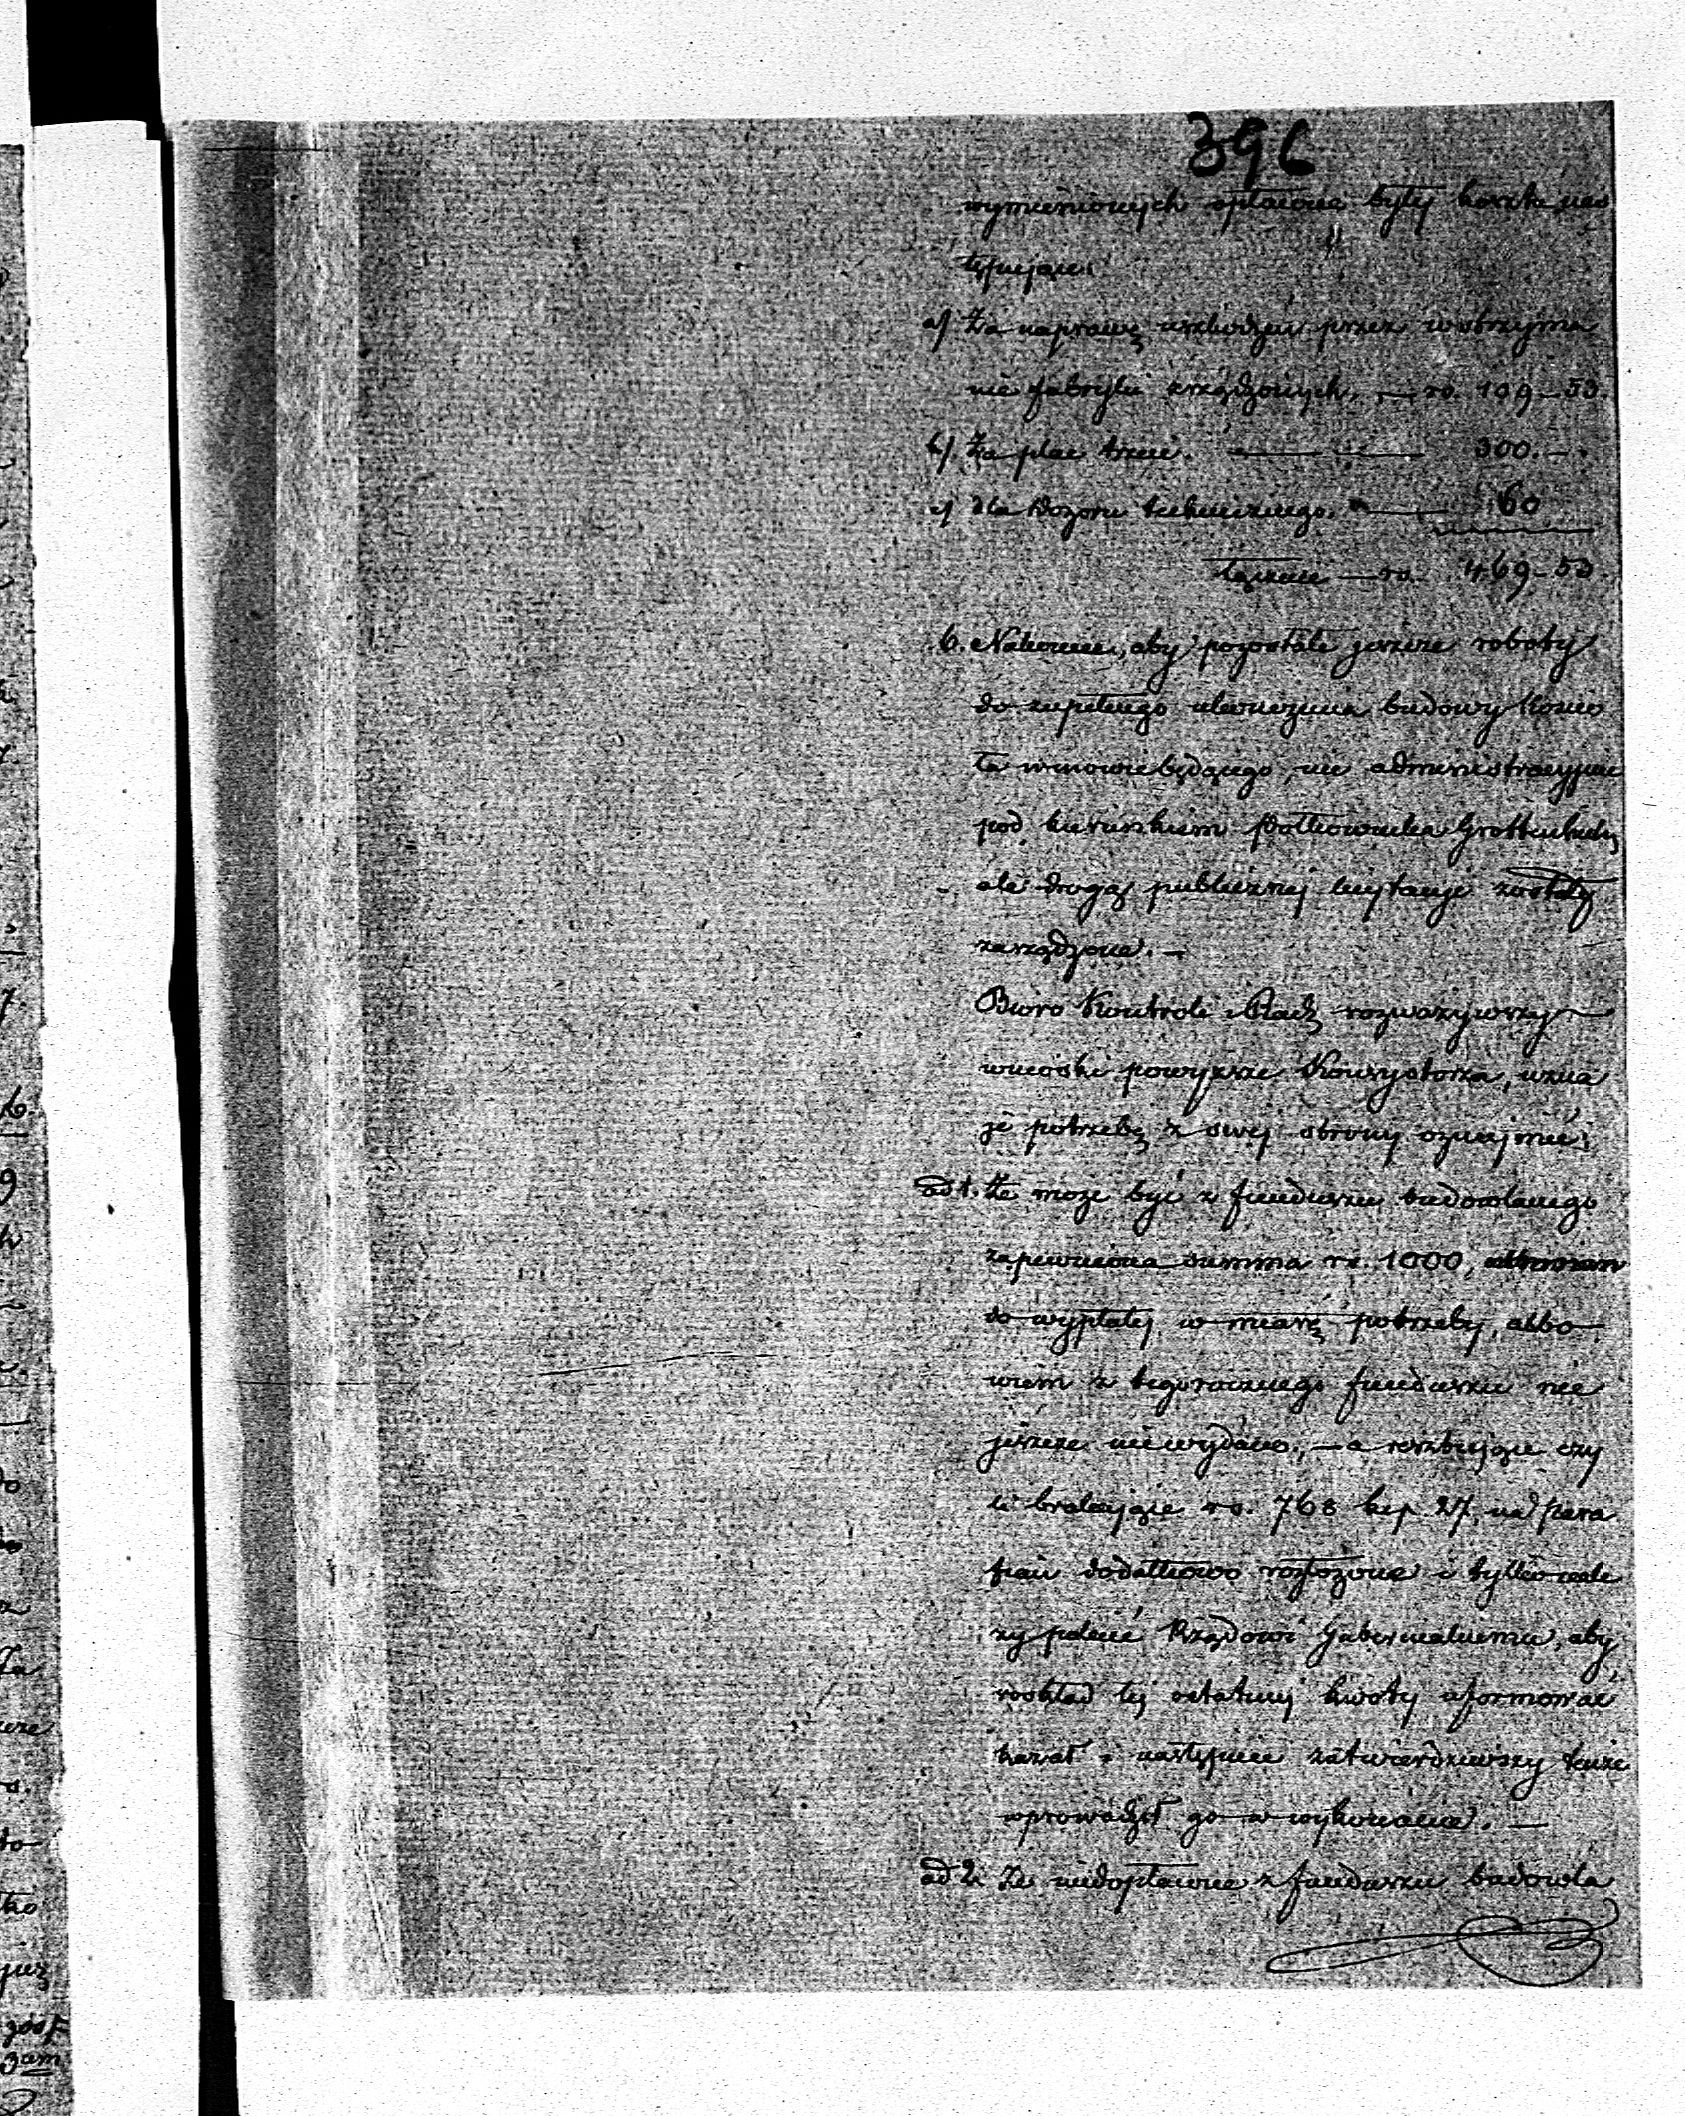 396
wymienionych opłacone były koszta nas
tępujące:
a) Za naprawę uszkodzeń przez wstrzyma
nie fabryki zrządzonych, — rs. 109 – 53.
b) Za plac trzeci. — 300. –
c) dla Dozoru technicznego. — 60
łącznie — rs. 469 – 53.
6. Nakoniec, aby pozostałe jeszcze roboty
do zupełnego ukończenia budowy Kościo
ła w mowie będącego, nie administracyjnie
pod kierunkiem Pułkownika
ale drogą publicznej licytacji zostały
zarządzone. —
Biuro Kontroli i Rady rozważywszy
wnioski powyższe Konsystorza, uzna
je potrzebę z swej strony oznajmić:
ad 1. Że może być z funduszu budowlanego
zapewniona summa rs. 1000,
do wypłaty w miarę potrzeby, albo
wiem z tegorocznego funduszu nic
jeszcze nie wydano, — a resztujące czy
li brakujące rs. 768 kop. 27, na para
fian dodatkowo rozłożone i tylko nale
ży polecić Rządowi Gubernialnemu, aby
rozkład tej ostatniej kwoty uformować
kazał i następnie zatwierdziwszy tenże
wprowadził go w wykonanie. —
ad 2. Że niedopłacone z funduszu budowla